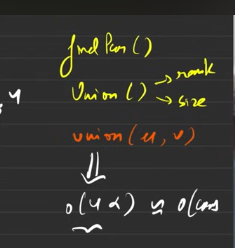 findPar()
Union() → rank
→ size
union(u, v)
⇓
O(4α) ≈ O(cons